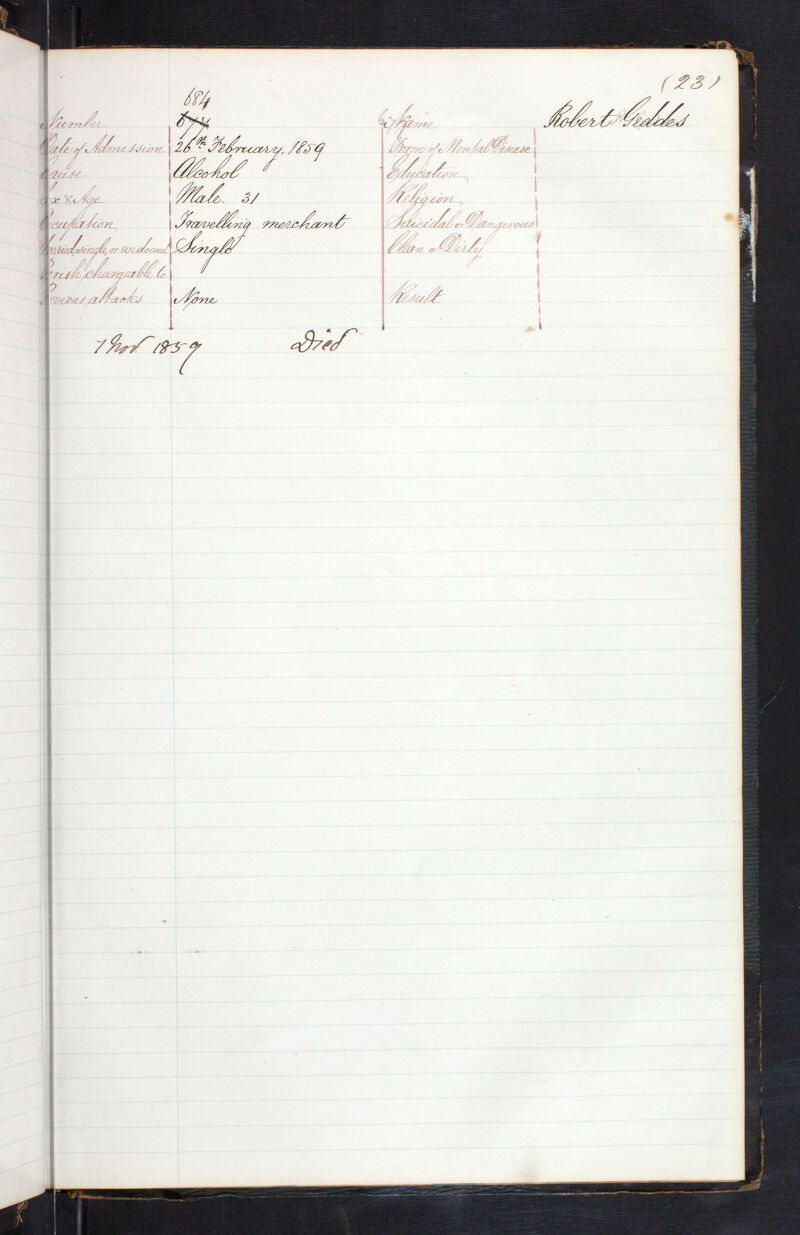 (23)
684
Number 677 Name Robert Geddes
Date of Admission 26th February, 1859 Form of Mental Disease
Cause Alcohol Education
Sex & Age Male. 31 Religion
Occupation Travelling merchant Suicidal or Dangerous
Married, single, or widowed Single Clean or Dirty
Parish chargeable to
Previous attacks None Result
7 Nov 1859 Died